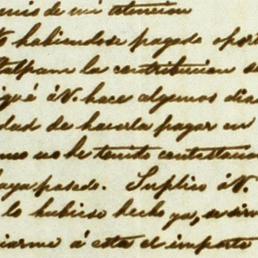 de mi atencion
habiendose pagado opor
talpam la contribucion de
á V. hace algunos dia
dad de hacerla pagar en
no he tenido contestacion
haya pasado. Suplico á V.
lo hubiese hecho ya, se sirv
iarme á esta el importe